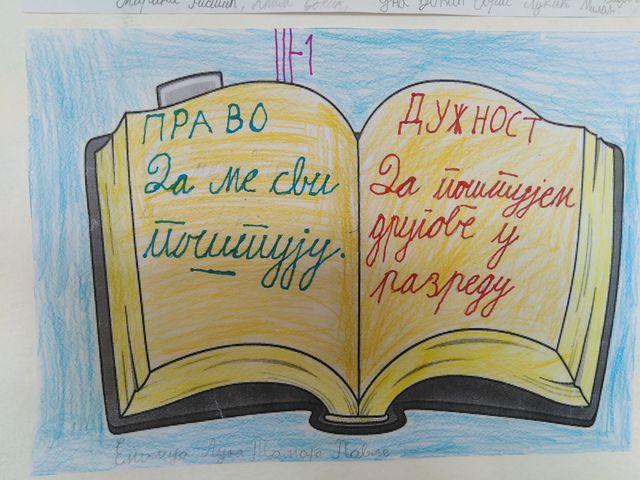 III-1
ПРАВО
Да ме сви
поштују.
ДУЖНОСТ
Да поштујем
другове у
разреду
Лука Тамара Павле